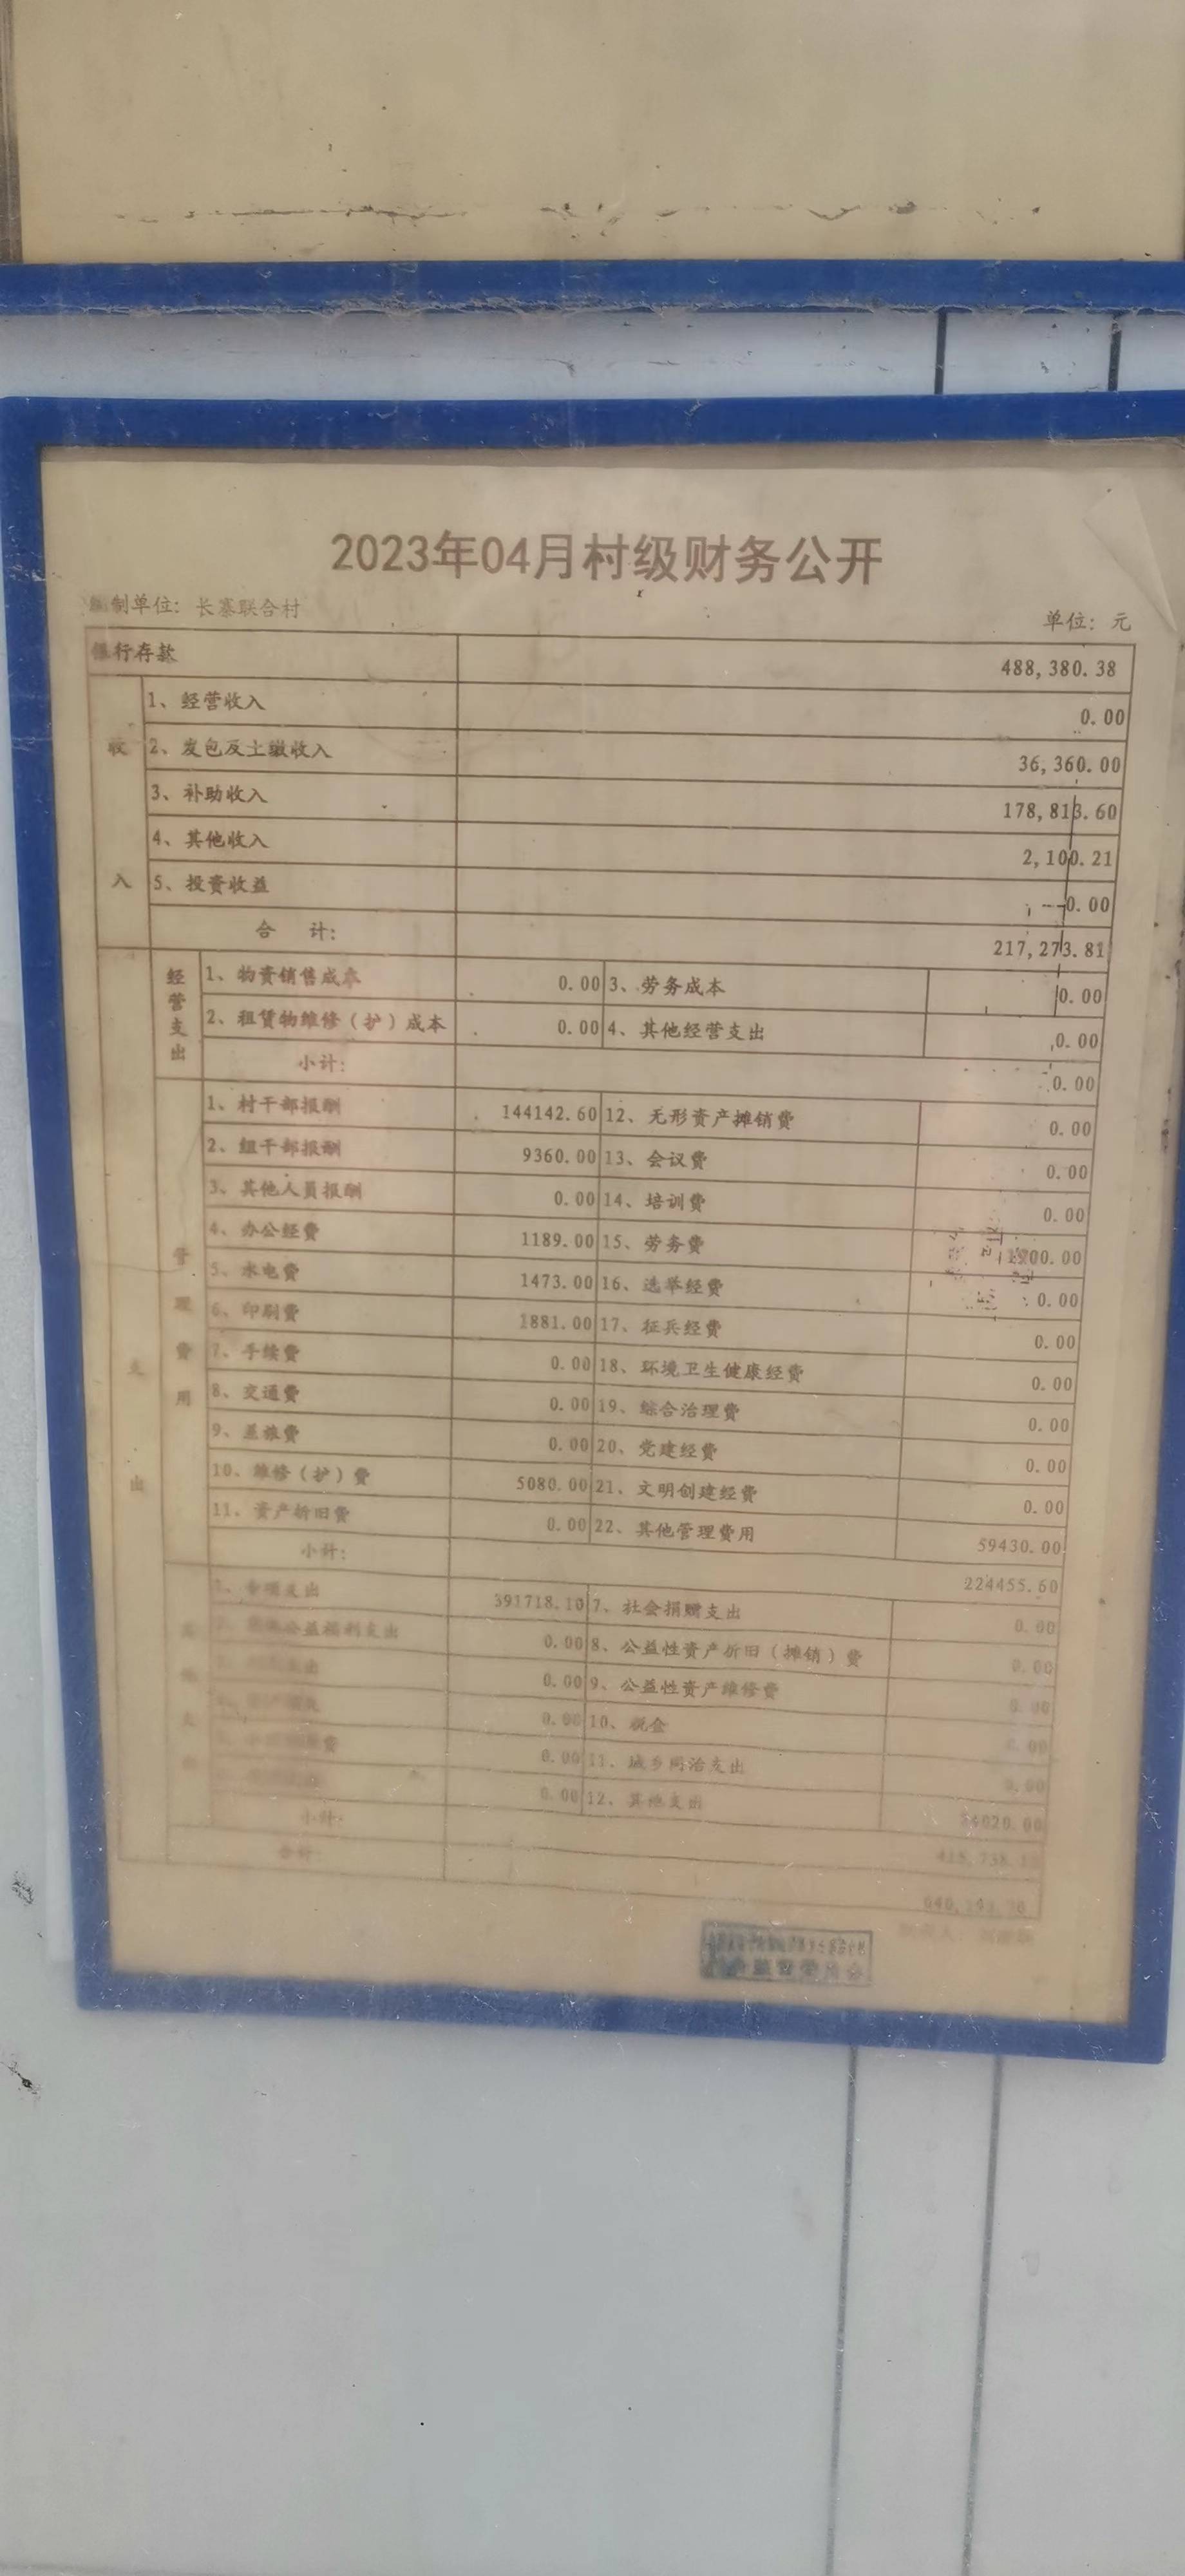 2023年04月村级财务公开
编制单位：长寨联合村 单位：元
银行存款 488,380.38
收入
1、经营收入 0.00
2、发包及上缴收入 36,360.00
3、补助收入 178,813.60
4、其他收入 2,100.21
5、投资收益 0.00
合 计： 217,273.81
支出
经营支出
1、物资销售成本 0.00 3、劳务成本 0.00
2、租赁物维修（护）成本 0.00 4、其他经营支出 0.00
小计： 0.00
管理费用
1、村干部报酬 144142.60 12、无形资产摊销费 0.00
2、组干部报酬 9360.00 13、会议费 0.00
3、其他人员报酬 0.00 14、培训费 0.00
4、办公经费 1189.00 15、劳务费
5、水电费 1473.00 16、选举经费 0.00
6、印刷费 1881.00 17、征兵经费 0.00
7、手续费 0.00 18、环境卫生健康经费 0.00
8、交通费 0.00 19、综合治理费 0.00
9、差旅费 0.00 20、党建经费 0.00
10、维修（护）费 5080.00 21、文明创建经费 0.00
11、资产折旧费 0.00 22、其他管理费用 59430.00
小计： 224455.60
1、专项支出 391718.10 7、社会捐赠支出 0.00
公益福利支出 0.00 8、公益性资产折旧（摊销）费 0.00
支出 0.00 9、公益性资产维修费 0.00
0.00 10、税金 0.00
费 0.00 11、城乡同治支出 0.00
0.00 12、其他支出 24020.00
小计：
合计：